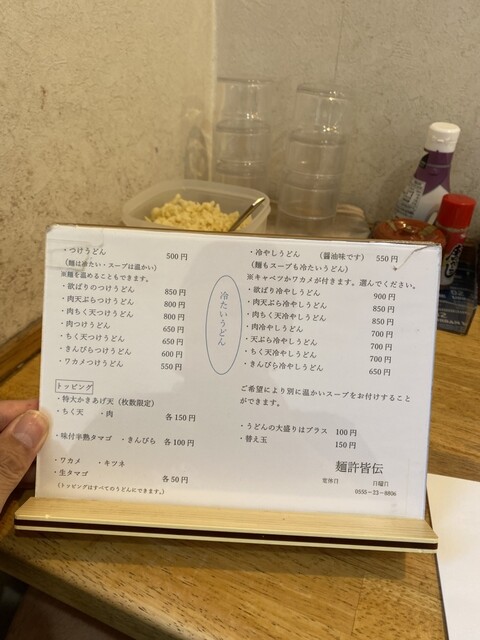 ・つけうどん 500円
（麺は冷たい・スープは温かい）
※麺を温めることもできます。
・欲ばりのつけうどん 850円
・肉天ぷらつけうどん 800円
・肉ちく天つけうどん 800円
・肉つけうどん 650円
・ちく天つけうどん 650円
・きんぴらつけうどん 600円
・ワカメつけうどん 550円
トッピング
・特大かきあげ天（枚数限定）
・ちく天 ・肉 各150円
・味付半熟タマゴ ・きんぴら 各100円
・ワカメ ・キツネ
・生タマゴ 各50円
（トッピングはすべてのうどんにできます。）
冷たいうどん
・冷やしうどん （醤油味です） 550円
（麺もスープも冷たいうどん）
※キャベツかワカメが付きます。選んでください。
・欲ばり冷やしうどん 900円
・肉天ぷら冷やしうどん 850円
・肉ちく天冷やしうどん 850円
・肉冷やしうどん 700円
・天ぷら冷やしうどん 700円
・ちく天冷やしうどん 700円
・きんぴら冷やしうどん 650円
ご希望により別に温かいスープをお付けすること
ができます。
・うどんの大盛りはプラス 100円
・替え玉 150円
麺許皆伝
定休日 日曜日
0555－23－8806